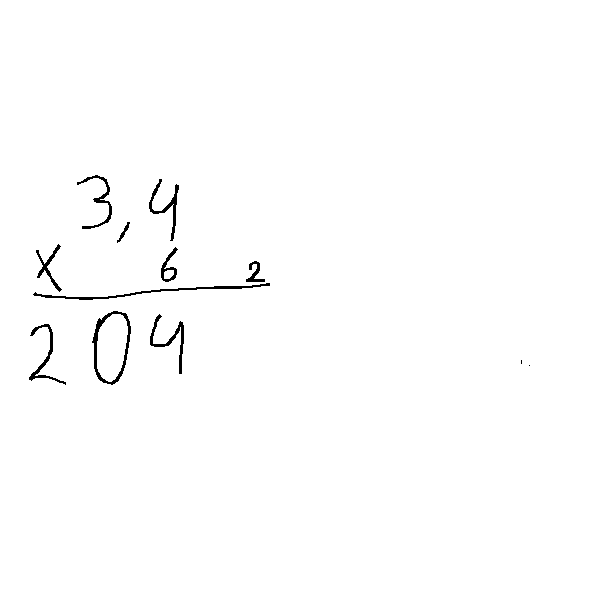 3,4
x 6 2
204